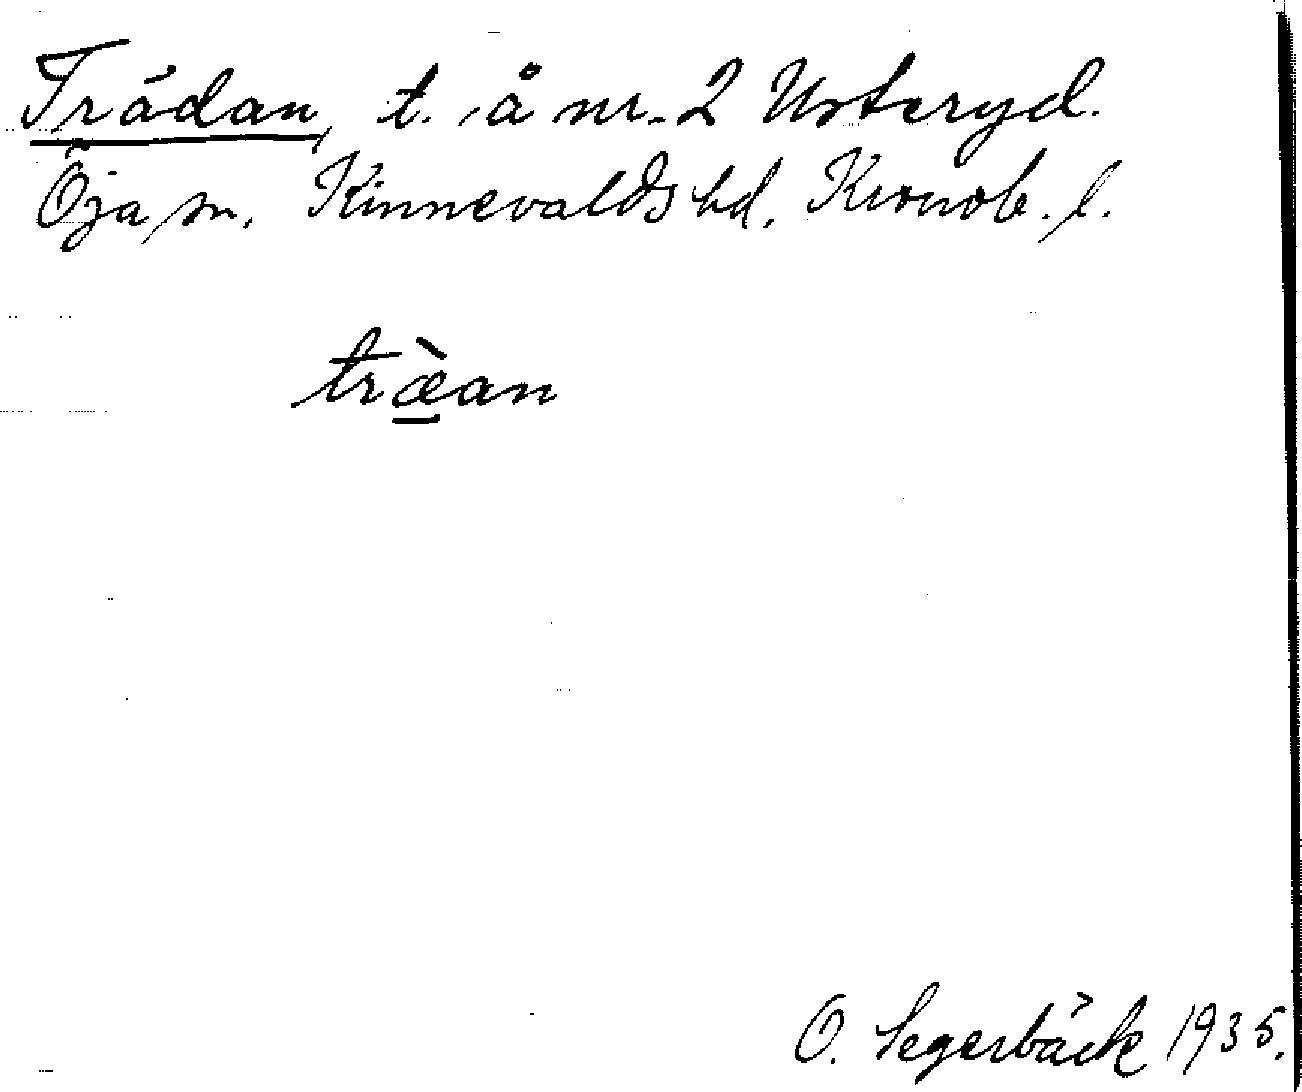 Trädan, t. å nr. 2 Usteryd.
Öja sn. Kinnevalds hd. Kronob. l.
træ̀an
O. Segerbäck 1935.